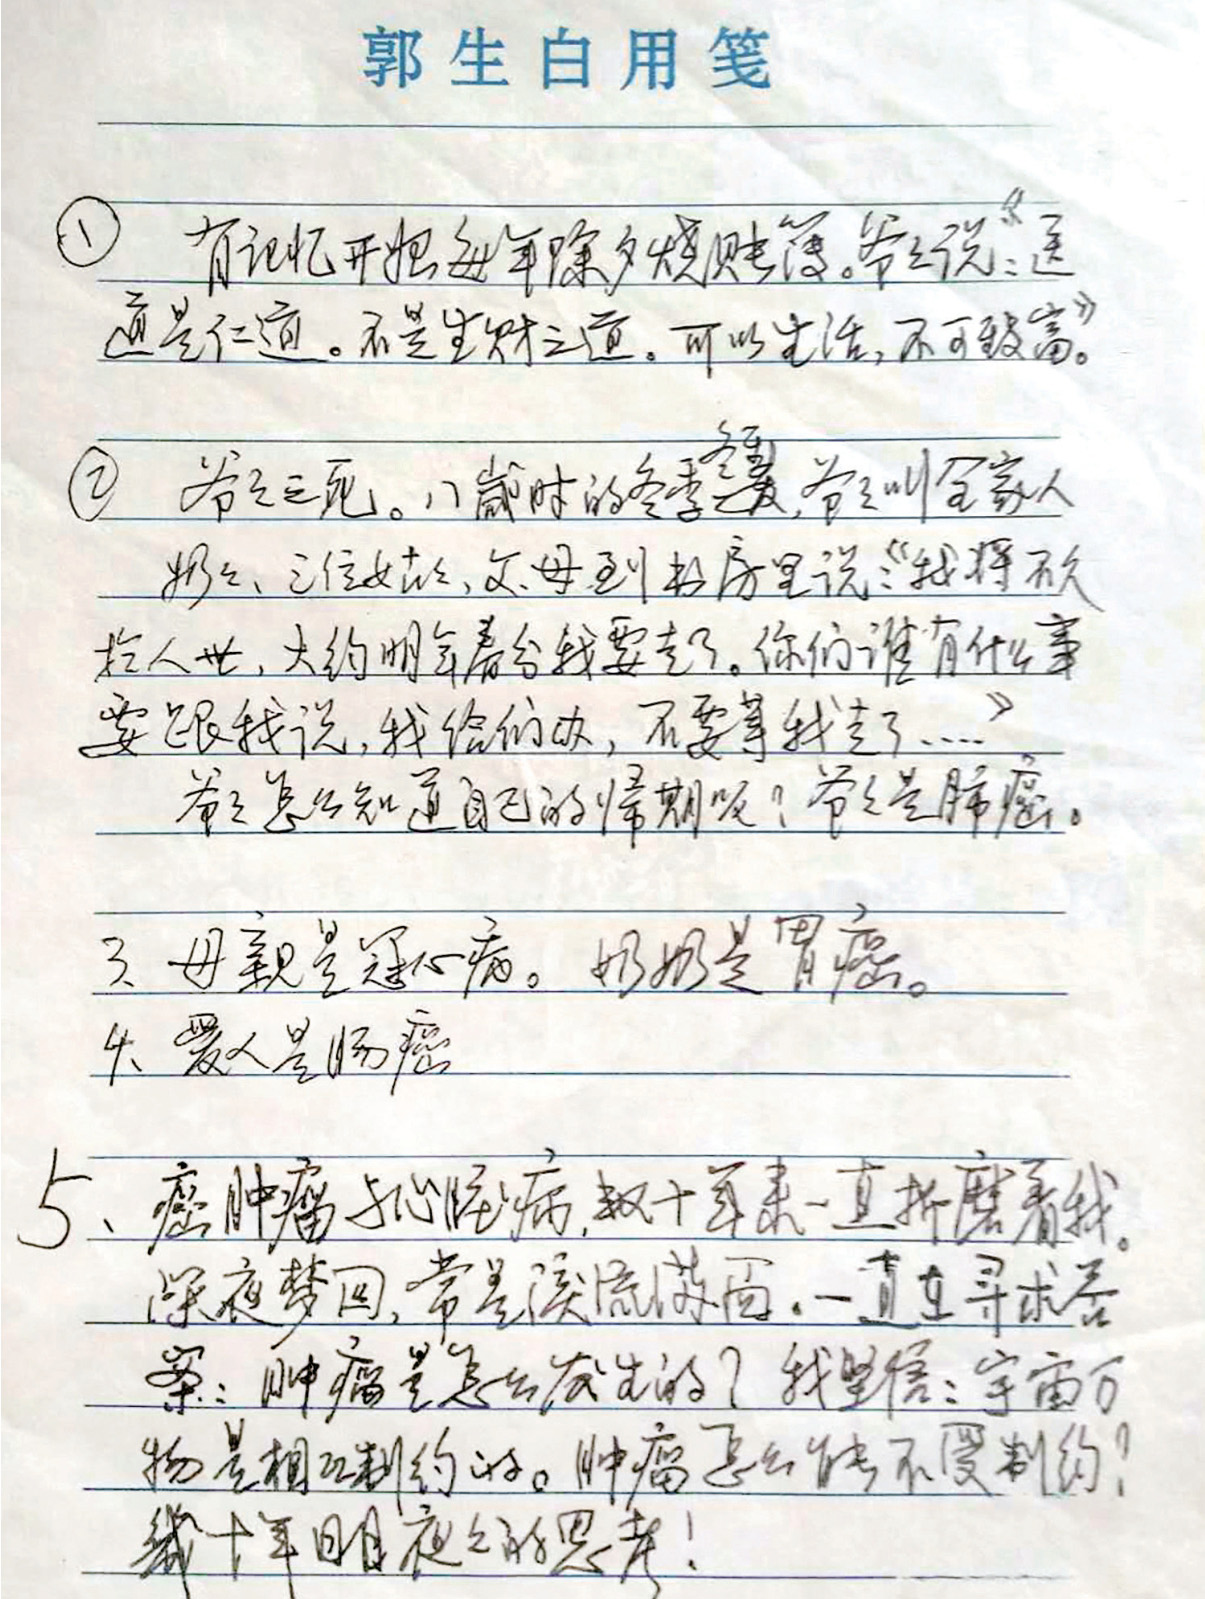 郭生白用笺
① 有记忆开始每年除夕烧账簿。爷爷说：“医
道是仁道。不是生财之道。可以生活，不可致富”。
② 爷爷之死。八歲时的冬季，爷爷叫全家人
奶奶、三位姑姑、父、母到书房里说：“我将不久
於人世，大约明年春分我要走了。你们谁有什么事
要跟我说，我给们办，不要等我走了....”
爷爷怎么知道自己的归期呢？爷爷是肺癌。
3、母親是冠心病。奶奶是胃癌。
4、爱人是肠癌
5、癌肿瘤与心脏病，数十年来一直折磨着我。
深夜梦回，常是泪流满面。一直在寻求答
案：肿瘤是怎么发生的？我坚信：宇宙万
物是相互制约的。肿瘤怎么能不受制约？
幾十年日日夜夜的思考！